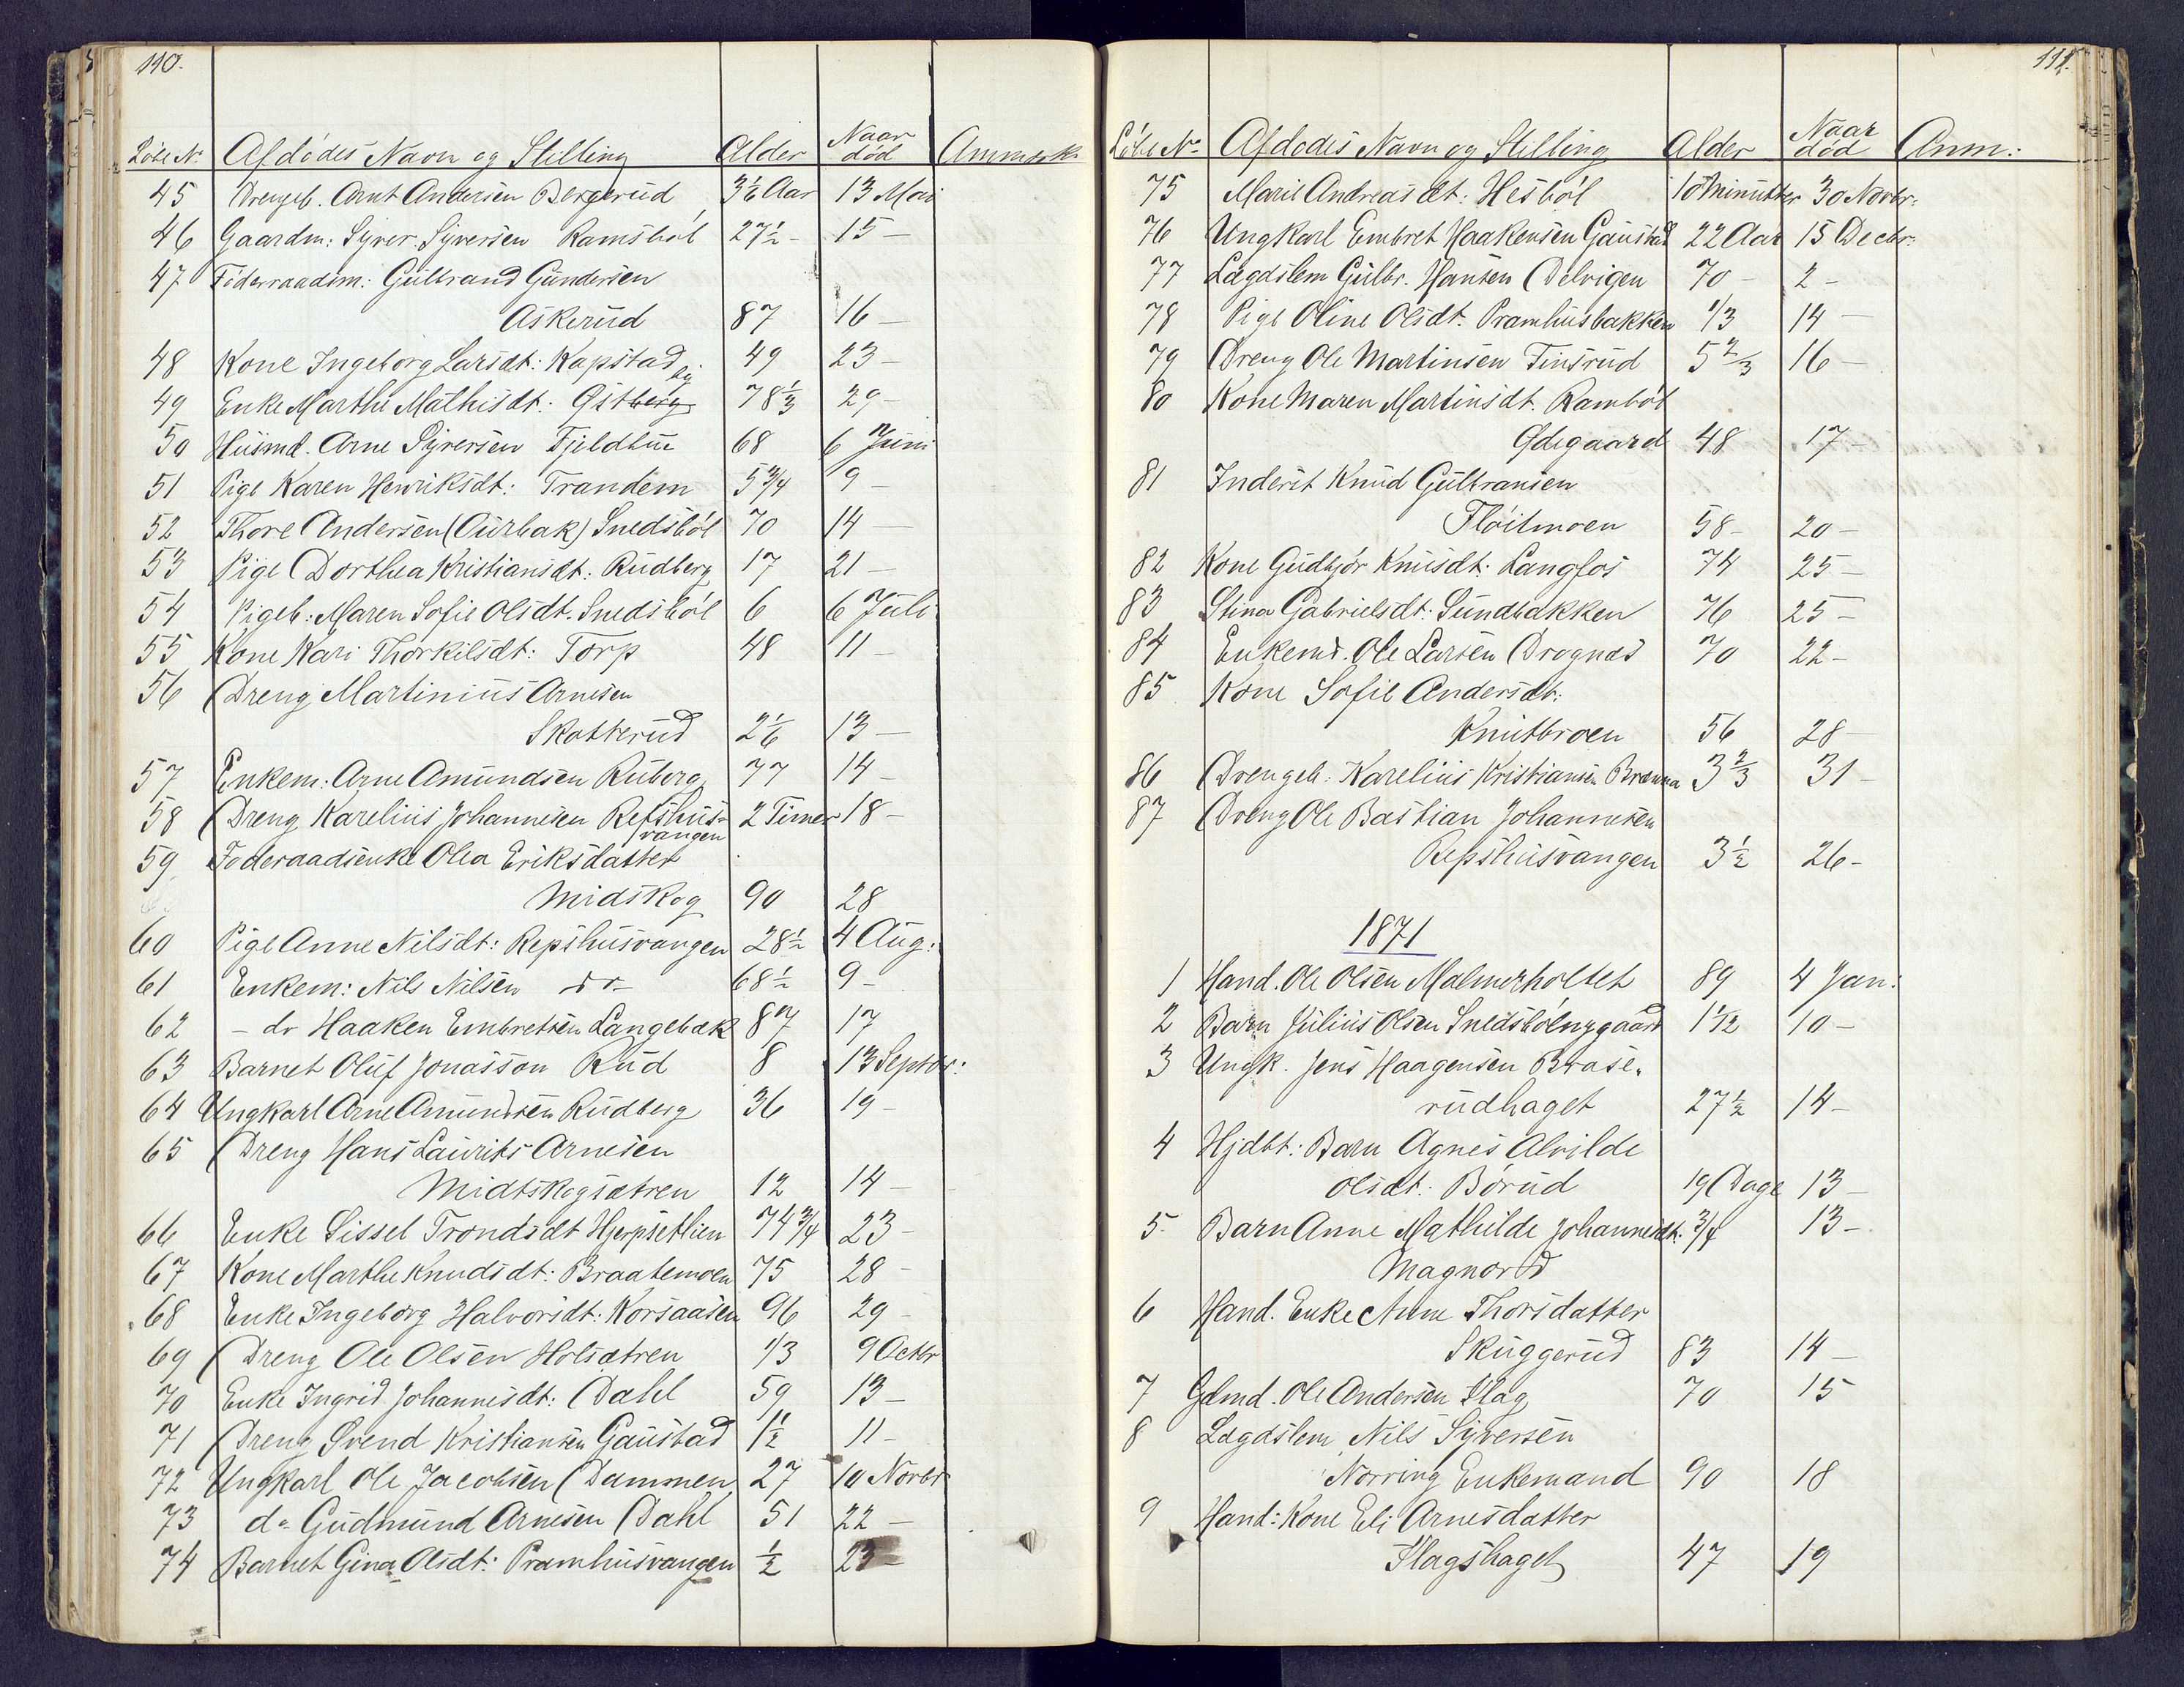 110.
Löbe Nr. Afdödes Navn og Stilling Alder Naar död Anmærk.
45 Drengeb. Arnt Andersen Bergerud 3½ Aar 13 Mai
46 Gaardm: Syver Syversen Ramsböl 27½ - 15 -
47 Föderraadsm: Gulbrand Gundersen
Askerud 87 16 -
48 Kone Ingeborg Larsdt: Kapstad 49 23 -
49 Enke Marthe Mathisdt: Östberg 78⅓ 29 -
50 Husmd. Arne Syversen Fjeldhue 68 6 Juni
51 Pige Karen Henriksdt: Trandem 5¾ 9 -
52 Thore Andersen (Aurbak) Snedsböl 70 14 -
53 Pige Dorthea Kristiansdt: Rudberg 17 21 -
54 Pigeb: Maren Sofie Olsdt. Snedsböl 6 6 Juli
55 Kone Kari Thorkilsdt: Torp 48 11 -
56 Dreng Martinius Arnesen
Skatterud 2⅙ 13 -
57 Enkem: Arne Amundsen Ruberg 77 14 -
58 Dreng Karelius Johannesen Repshus-
vangen 2 Timer 18 -
59 Foderaadsenke Olea Eriksdatter
Midskog 90 28
60 Pige Anne Nilsdt: Repshusvangen 28½ 4 Aug:
61 Enkem: Nils Nilsen do 68½ 9 -
62 - do Haaken Embretsen Langebæk 87 17
63 Barnet Oluf Jonasson Rud 8 13 Septbr:
64 Ungkarl Arne Amundsen Rudberg 36 19 -
65 Dreng Hans Laurits Arnesen
Midtskogsætren 12 14 -
66 Enke Sissel Trondsdt Hjerpsetlien 74¾ 23 -
67 Kone Marthe Knudsdt: Braatemoen 75 28 -
68 Enke Ingeborg Halvorsdt: Korsaasen 96 29 -
69 Dreng Ole Olsen Holsætren 1/3 9 Octbr
70 Enke Ingrid Johannesdt: Dahl 59 13 -
71 Dreng Svend Kristiansen Gaustad 1½ 11 -
72 Ungkarl Ole Jacobsen Dammen 27 10 Novbr
73 do Gudmund Arnesen Dahl 51 22 -
74 Barnet Gina Olsdt: Pramhusvangen ½ 23 -
111.
Löbe Nr. Afdödes Navn og Stilling Alder Naar död Anm:
75 Marie Andreasdt: Hesböl 10 Minutter 30 Novbr:
76 Ungkarl Embret Haakensen Gaustad 22 Aar 15 Decbr:
77 Lægdslem Gulbr. Hansen Delvigen 70 - 2 -
78 Pige Oline Olsdt. Pramhusbakken 1/3 14 -
79 Dreng Ole Martinsen Tinsrud 5⅔ 16 -
80 Kone Maren Martinsdt. Ramböl
Ödegaard 48 17 -
81 Inderst Knud Gulbransen
Flöitmoen 58 - 20 -
82 Kone Gudbjör Knusdt: Langfos 74 25 -
83 Stina Gabrielsdt: Sundbakken 76 25 -
84 Enkemd. Ole Larsen Drognæs 70 22 -
85 Kone Sofie Andersdt:
Knutbroen 56 28 -
86 Drengeb: Karelius Kristiansen Brænna 3⅔ 31 -
87 Dreng Ole Bastian Johannesen
Repshusvangen 3½ 26 -
1871
1 Hand. Ole Olsen Malmerholtet 89 4 Jan:
2 Barn Julius Olsen Snedsbölnygaard 1 1/12 10 -
3 Ungk. Jens Haagensen Brase-
rudhaget 27½ 14 -
4 Hjdbt: Barn Agnes Alvilde
Olsdt: Börud 19 Dage 13 -
5 Barn Anne Mathilde Johannesdt: 3/4 13 -
Magnord
6 Hand. Enke Anne Thorsdatter
Skuggerud 83 14 -
7 Gdmd. Ole Andersen Flag 70 15
8 Lægdslem Nils Syversen
Norring Enkemand 90 18
9 Hand: Kone Eli Arnesdatter
Flagshaget 47 19